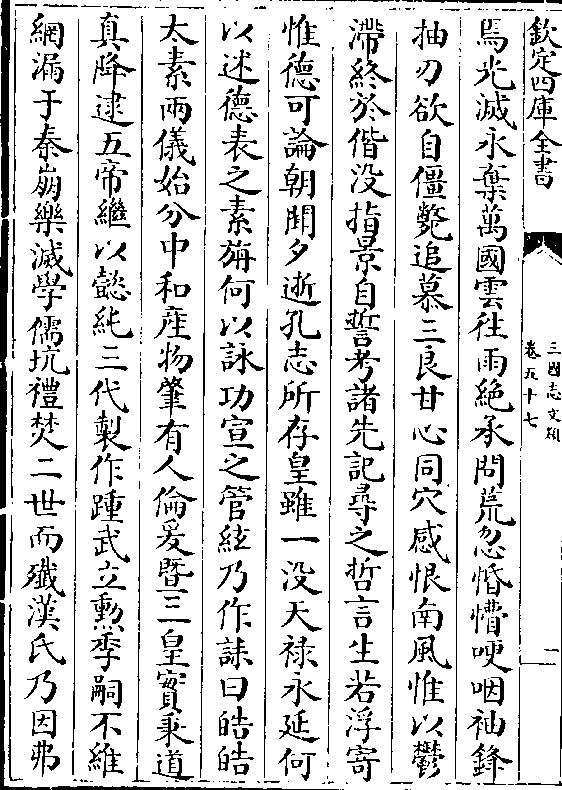 欽定四庫全書
三國志文類
卷五十七
一
焉光滅永棄萬國雲往雨絶承問荒忽惛懵哽咽袖鋒
抽刃欲自僵斃追慕三良甘心同穴感恨南風惟以鬱
滯終於偕没指景自誓考諸先記尋之哲言生若浮寄
惟德可論朝聞夕逝孔志所存皇雖一没天禄永延何
以述德表之素旃何以詠功宣之管絃乃作誄曰皓皓
太素兩儀始分中和産物筆有人倫爰暨三皇實秉道
真降逮五帝繼以懿純三代製作踵武立勲季嗣不維
網漏于秦崩樂滅學儒坑禮焚二世而殲漢氏乃因弗